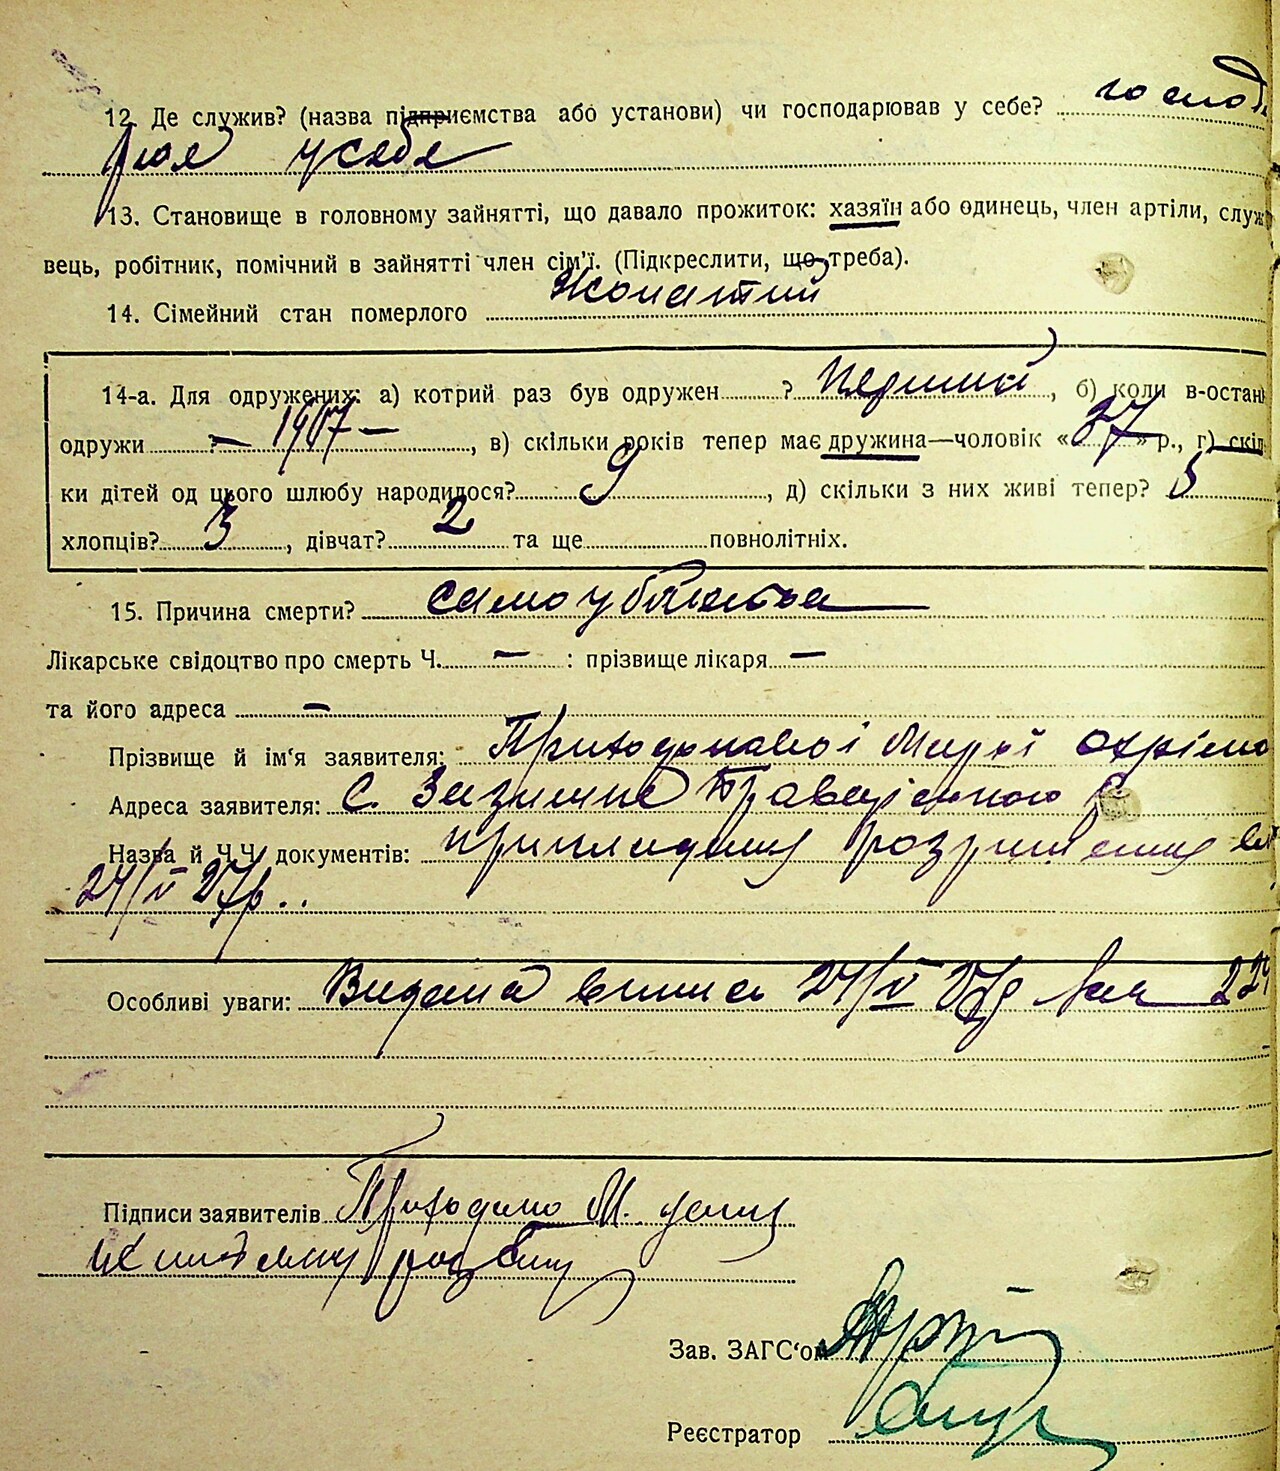 12. Де служив? (назва підприємства або установи) чи господарював у себе? господа
рює у себе
13. Становище в головному зайнятті, що давало прожиток: хазяїн або одинець, член артіли, служ
вець, робітник, помічний в зайнятті член сім'ї. (Підкреслити, що треба).
14. Сімейний стан померлого Жонатий
14-а. Для одружених: а) котрий раз був одружен ? Перший, б) коли в-остан
одружи ? — 1907 —, в) скільки років тепер має дружина—чоловік «37» р., г) скіл
ки дітей од цього шлюбу народилося? 9, д) скільки з них живі тепер? 5
хлопців? 3, дівчат? 2 та ще повнолітніх.
15. Причина смерти? самоубійства
Лікарське свідоцтво про смерть Ч. — : прізвище лікаря —
та його адреса —
Прізвище й ім'я заявителя: Марії
Адреса заявителя: С.
Назва й Ч.Ч. документів:
24/V 27р..
Особливі уваги: Видана 24/V 27р 224
Підписи заявителів М.
Зав. ЗАГС'ом
Реєстратор